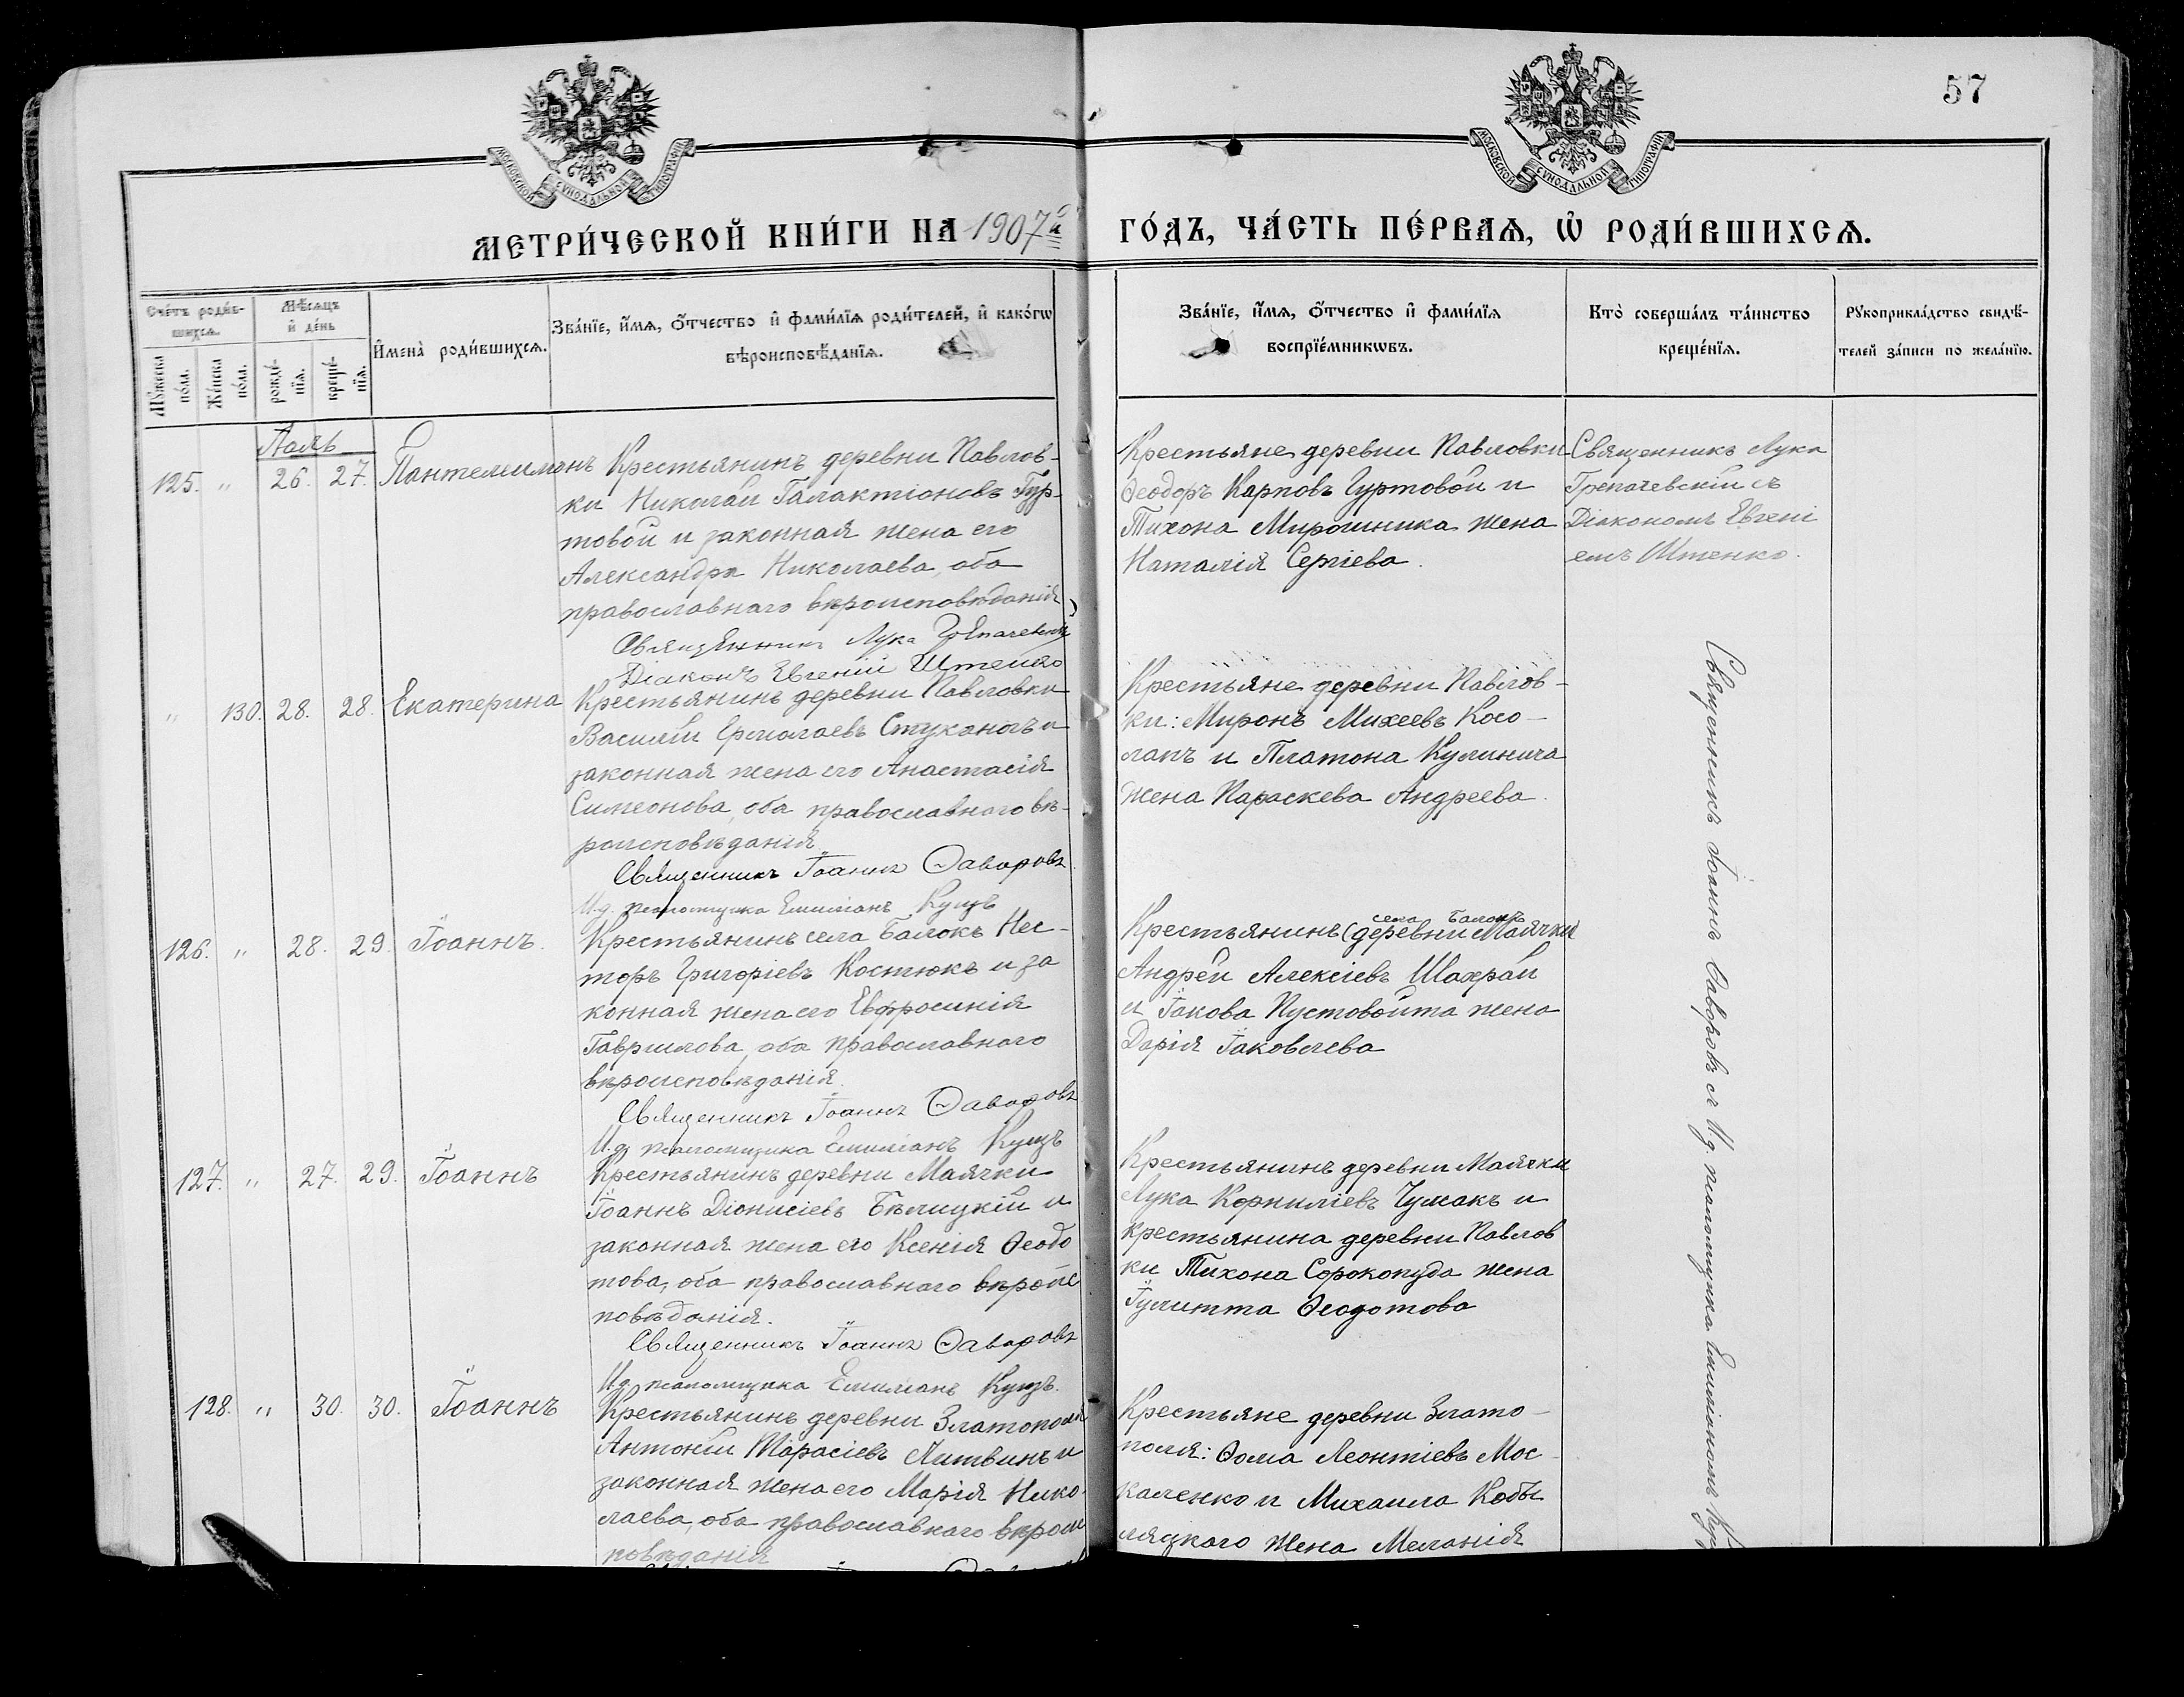 57
МОСКОВСКОЙ СѴНОДАЛЬНОЙ ТИПОГРАФІИ
МОСКОВСКОЙ СѴНОДАЛЬНОЙ ТИПОГРАФІИ
МЕТРИ́ЧЕСКОЙ КНИ́ГИ НА 1907й ГО́ДЪ, ЧА́СТЬ ПЕ́РВАѦ, Ѡ҆ РОДИ́ВШИХСѦ.
Сче́тъ роди́в-
шихсѧ.
Мꙋ́жеска по́ла.
Же́нска по́ла.
Мѣ́сѧцъ
и҆ де́нь
рожде́-
нїѧ.
креще́-
нїѧ.
И҆мена̀ роди́вшихсѧ.
Зва́нїе, и҆́мѧ, ѻ҆́тчество и҆ фами́лїѧ роди́телей, и҆ како́гѡ
вѣроисповѣ́данїѧ.
Зва́нїе, и҆́мѧ, ѻ҆́тчество и҆ фами́лїѧ
воспрїе́мникѡвъ.
Кто̀ соверша́лъ та́инство
креще́нїѧ.
Рꙋкоприкла́дство свидѣ́-
телей за́писи по жела́нїю.
Іюль
125. " 26. 27. Пантелеимонъ
Крестьянинъ деревни Павлов-
ки Николай Галактіоновъ Гур-
товой и законная жена его
Александра Николаева, оба
православнаго вѣроисповѣданія
Священникъ Лука Трепачевскій
Діаконъ Евгеній Штенко
Крестьяне деревни Павловки
Ѳеодоръ Карповъ Гуртовой и
Тихона Мирошника жена
Наталія Сергіева.
Священникъ Лука
Трепачевскій съ
Діакономъ Евгені
емъ Штенко.
" 130. 28. 28. Екатерина
Крестьянинъ деревни Павловки
Василій Ермолаевъ Стуканъ и
законная жена его Анастасія
Симеонова, оба православнаго вѣ-
роисповѣданія.
Священникъ Іоаннъ Ѳаворовъ
И.д. псаломщика Емиліанъ Кущъ
Крестьяне деревни Павлов-
ки: Миронъ Михеевъ Косо-
лапъ и Платона Кулинича
жена Параскева Андреева.
126. " 28. 29. Іоаннъ.
Крестьянинъ села Балокъ Нес-
торъ Григоріевъ Костюкъ и за
конная жена его Евфросинія
Гавриилова, оба православнаго
вѣроисповѣданія.
Священникъ Іоаннъ Ѳаворовъ
И.д. псаломщика Емиліанъ Кущъ
села Балокъ
Крестьянинъ (деревни Маячки
Андрей Алексіевъ Шахрай
и Іакова Пустовойта жена
Дарія Іаковлева
127. " 27. 29. Іоаннъ
Крестьянинъ деревни Маячки
Іоаннъ Діонисіевъ Бѣлицкій и
законная жена его Ксенія Ѳеодо
това, оба православнаго вѣроис
повѣданія.
Священникъ Іоаннъ Ѳаворовъ
И.д. псаломщика Емиліанъ Кущъ.
Крестьянинъ деревни Маячки
Лука Корниліевъ Чумакъ и
крестьянина деревни Павлов
ки Тихона Сорокопуда жена
Іулитта Ѳеодотова
128. " 30. 30. Іоаннъ
Крестьянинъ деревни Златополя
Антоній Тарасіевъ Литвинъ и
законная жена его Марія Нико-
лаева, оба православнаго вѣроис
повѣданія
Крестьяне деревни Злато-
поля: Ѳома Леонтіевъ Мос-
каленко и Михаила Кобы
ляцкого жена Меланія
Священникъ Іоаннъ Ѳаворовъ съ И.д. псаломщика Емиліаномъ